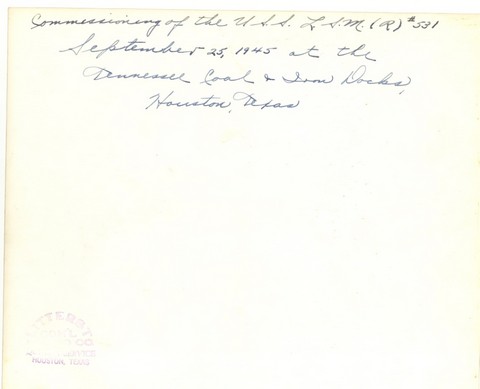 Commissioning of the U.S.S. L.S.M.(R) #531
September 25, 1945 at the
Tennessee Coal & Iron Docks,
Houston, Texas
HOUSTON, TEXAS